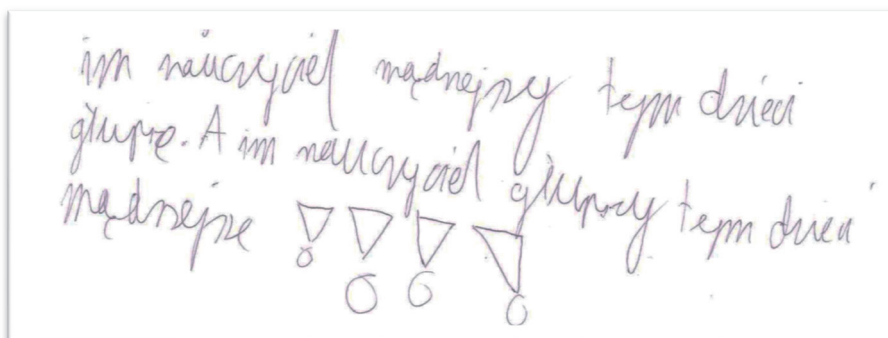 im nauczyciel mądrzejszy tym dzieci
głupsze. A im nauczyciel głupszy tym dzieci
mądrzejsze